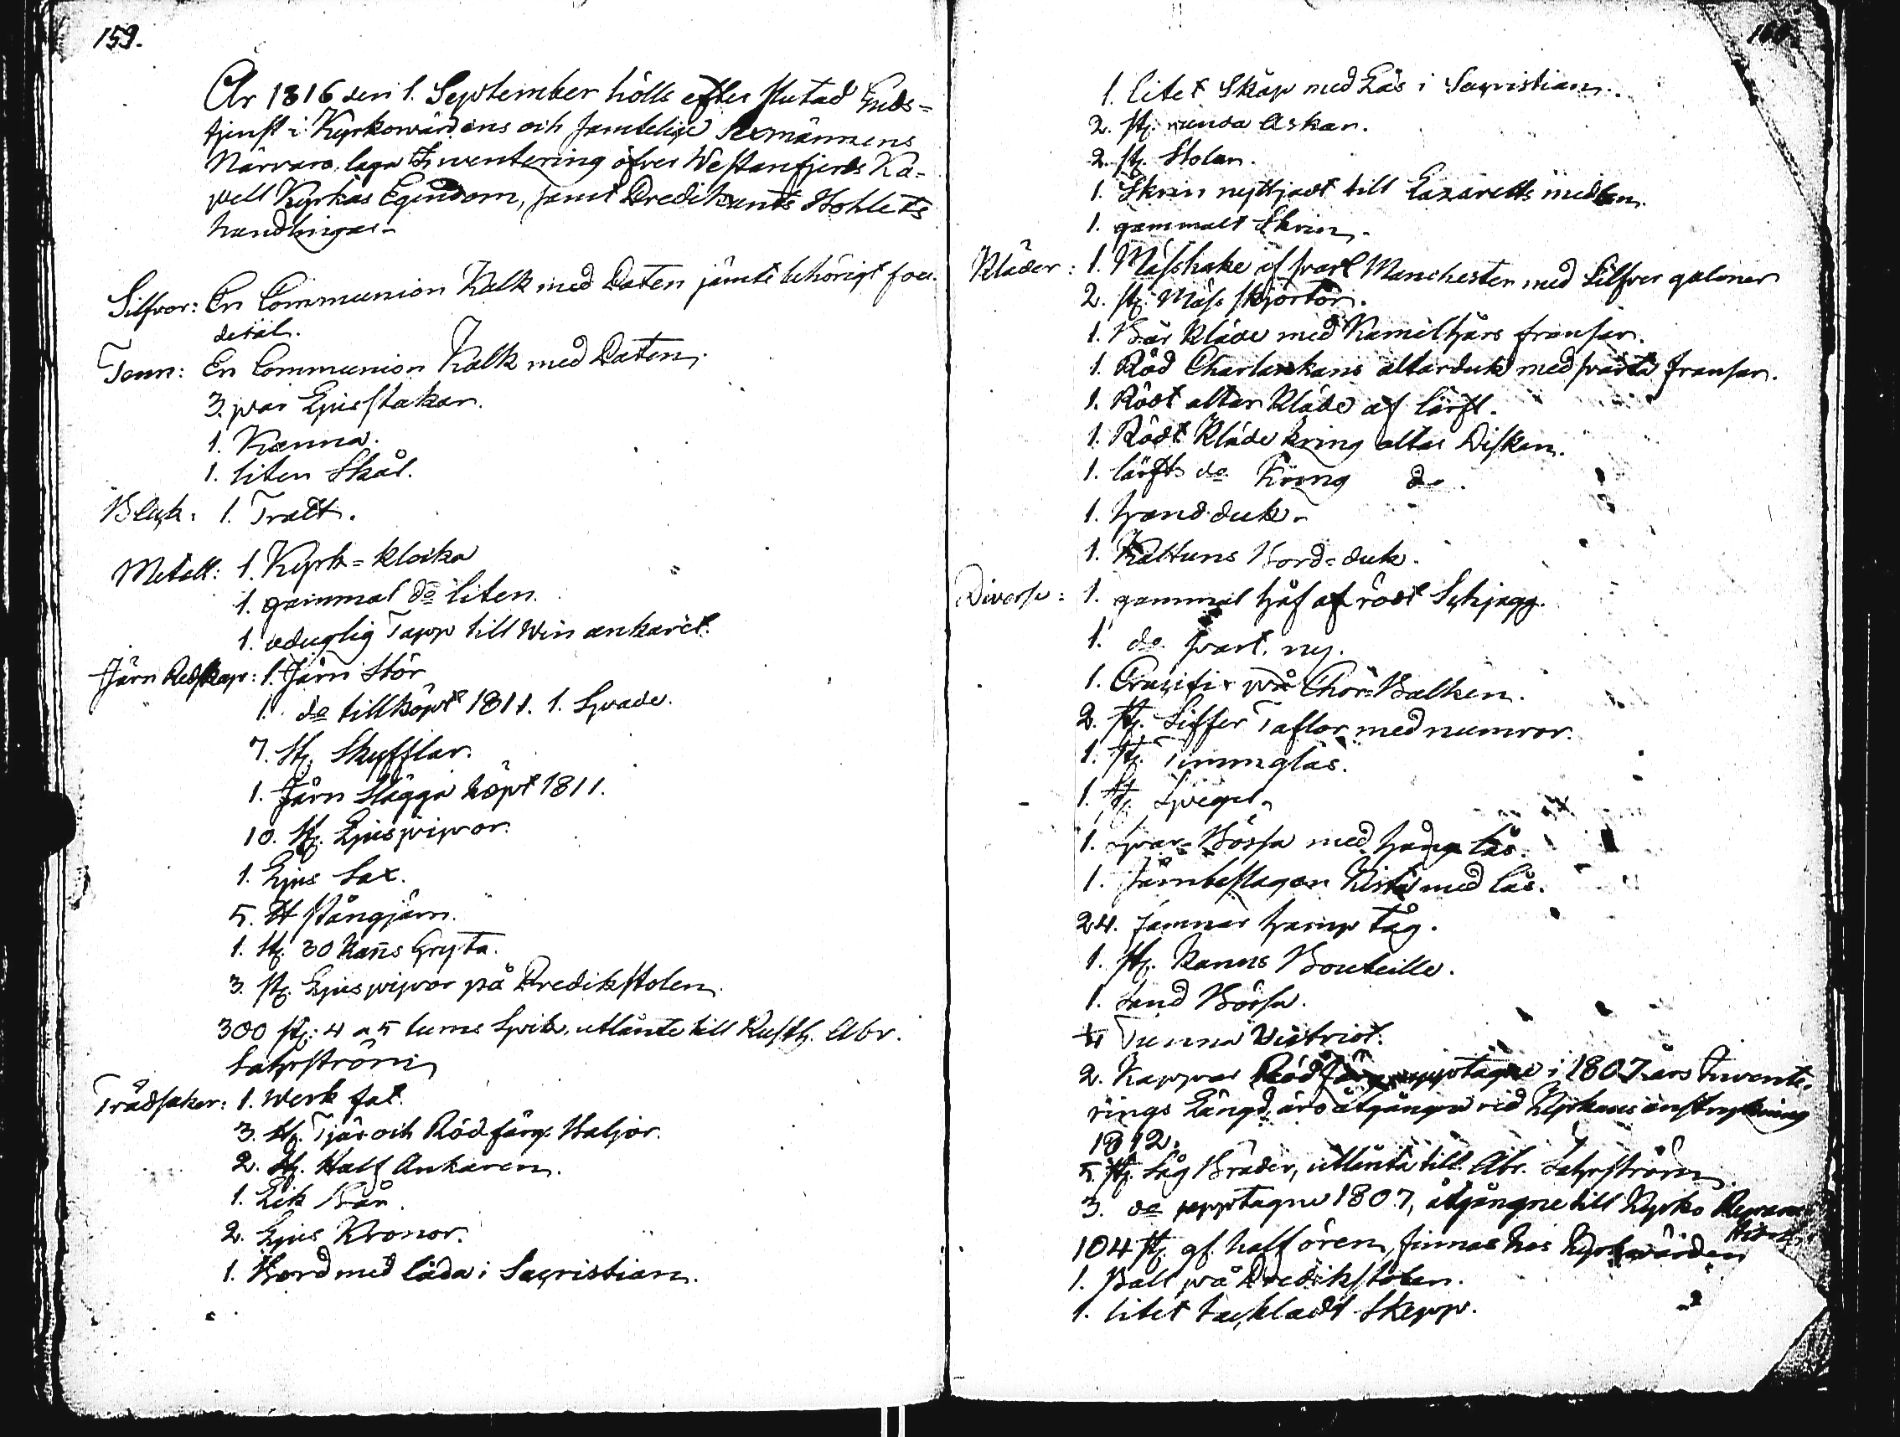 159.
År 1816 den 1. September hölls efter slutad Guds=
tjenst i Kyrkowärdens och samtelige Sexmännens
Närvaro laga Inventering öfver Westanfjerds Ka=
pell Kyrkas Egendom, samt Predikants Bohlets
handlingar.
Silfver: En Communion Kalk med Paten jämte behörigt fou-
deral.
Tenn: En Communion Kalk med Paten,
3. par Ljusstakar.
1. Kanna.
1. liten Skål.
Bleck: 1. Tratt.
Metall: 1. Kyrk=klocka
1. gammal do liten.
1. oduglig Tapp till Win ankaret.
Järn Redskap: 1. Järn Stör
1. do tillköpt 1811. 1. Spade.
7. st. Skyfflar.
1. Järn Slägga köpt 1811.
10. st. Ljuspipor.
1. Ljus Sax.
5. ℔ stångjärn.
1. st. 30 Kañs Gryta.
3. st. Ljuspipor på Predikstolen.
300 st. 4 a 5 tums Spik, utlånte till Rusth. Abr.
Sahrström
Trädsaker: 1. Werk fat.
3. st. Tjär och Rödfärgs Baljor.
2. st. Half Ankaren.
1. Lik Bår.
2. Ljus Kronor.
1. Bord med låda i Sacristian.
1. litet Skåp med Lås i Sacristian.
2. st. runda Askar.
2. st. Stolar.
1. Skrin nyttjadt till Lazaretts medlen.
1. gammalt Skrin.
Kläder: 1. Mässhake af svart Manchester med Silfver galoner
2. st. Mäss skjortor.
1. Bår kläde med Kamelhårs fransar.
1. Röd altarduk med svarta fransar.
1. Rödt altar kläde af lärft.
1. Rödt kläde kring altar Disken.
1. lärfts do Kring do.
1. handduk.
1. Kattuns Bord=duk.
Diverse: 1. gammal håf af rödt Schjagg.
1. do svart, ny.
1. Crucifix på Chor=Balken.
2. st. Siffer Taflor med numror.
1. st. Timmglas.
1. st. Spegel.
1. Spar=Bössa med häng lås.
1. Järnbeslagen Kista med lås.
24. famnar hamp tåg.
1. st. Kanns Bouteille.
1. Sand Bössa.
Tunna Victriol.
2. Kappar Rödfärg upptagne i 1807 års Invente-
rings Längd, äro åtgångne vid Kyrkans anstrykning
1812.
5 st. Såg Bräder, utlånta till Abr. Sahrström
3. do upptagne 1807, åtgångne till Kyrko Repara-
tion.
104 st. gl. half ören, finnas hos Kyrkwärden
1. Pall på Predikstolen.
1. litet tackladt Skepp.